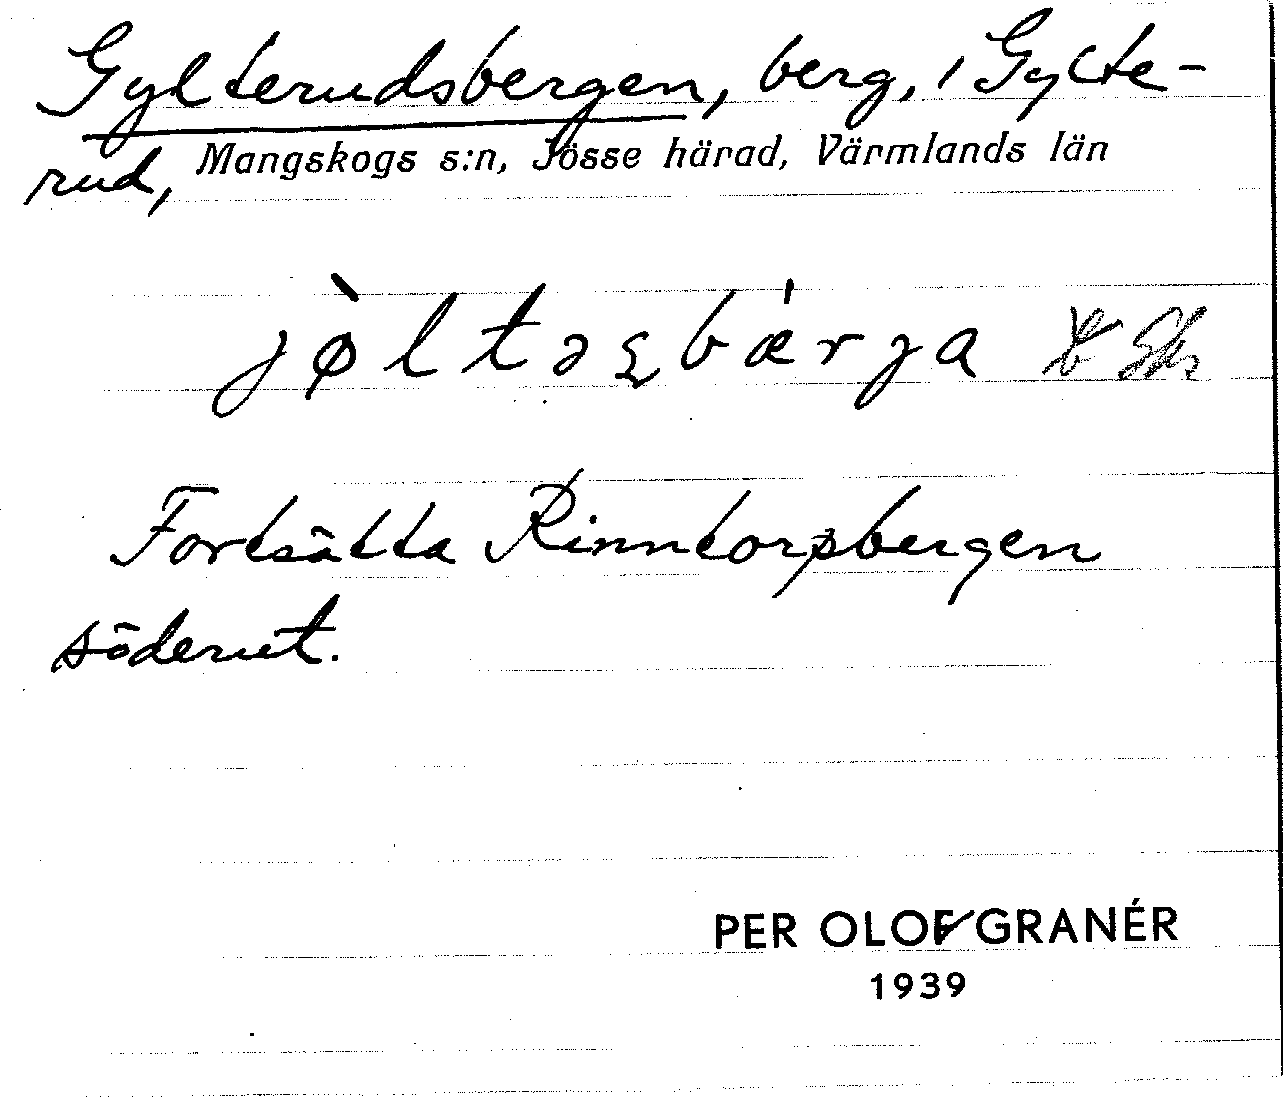 Gylterudsbergen, berg, i Gylte-
rud, Mangskogs s:n, Jösse härad, Värmlands län
jø̀ltəʂbǽrja
Fortsätta Rinntorpbergen
söderut.
PER OLOF GRANÉR
1939